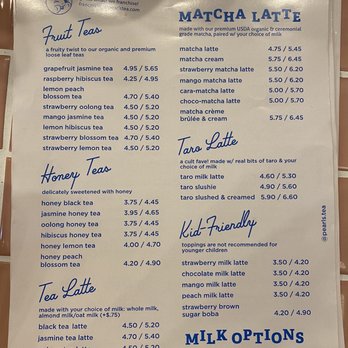 franchise!
Fruit Teas
a fruity twist to our organic and premium
loose leaf teas
grapefruit jasmine tea 4.95 / 5.65
raspberry hibiscus tea 4.25 / 4.95
lemon peach
blossom tea 4.70 / 5.40
strawberry oolong tea 4.50 / 5.20
mango jasmine tea 4.50 / 5.20
lemon hibiscus tea 4.50 / 5.20
strawberry blossom tea 4.70 / 5.40
strawberry lemon tea 4.50 / 5.20
Honey Teas
delicately sweetened with honey
honey black tea 3.75 / 4.45
jasmine honey tea 3.95 / 4.65
oolong honey tea 3.75 / 4.45
hibiscus honey tea 3.75 / 4.45
honey lemon tea 4.00 / 4.70
honey peach
blossom tea 4.20 / 4.90
Tea Latte
made with your choice of milk: whole milk,
almond milk/oat milk (+$.75)
black tea latte 4.50 / 5.20
jasmine tea latte 4.70 / 5.40
MATCHA LATTE
made with our premium USDA organic & ceremonial
grade matcha, paired w/ your choice of milk
matcha latte 4.75 / 5.45
matcha cream 5.75 / 6.45
strawberry matcha latte 5.50 / 6.20
mango matcha latte 5.50 / 6.20
cara-matcha latte 5.00 / 5.70
choco-matcha latte 5.00 / 5.70
matcha crème
brûlée & cream 5.75 / 6.45
Taro Latte
a cult fave! made w/ real bits of taro & your
choice of milk
taro milk latte 4.60 / 5.30
taro slushie 4.90 / 5.60
taro slushed & creamed 5.90 / 6.60
Kid-Friendly
toppings are not recommended for
younger children
strawberry milk latte 3.50 / 4.20
chocolate milk latte 3.50 / 4.20
mango milk latte 3.50 / 4.20
peach milk latte 3.50 / 4.20
strawberry brown
sugar boba 4.20 / 4.90
MILK OPTIONS
@pearls.tea